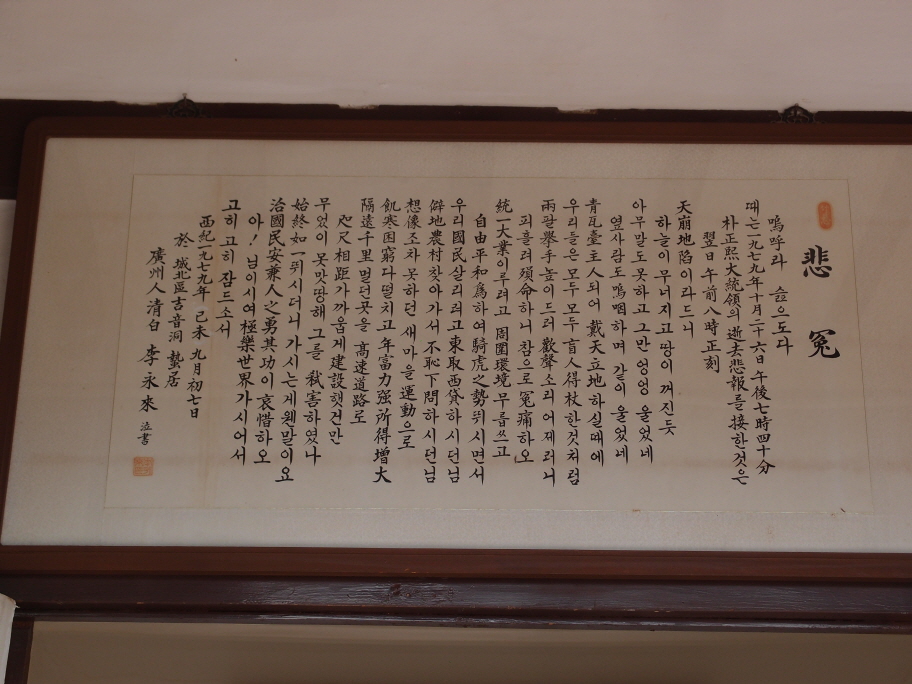 悲冤
嗚呼라 슬으도다
때는一九七九年十月二十六日午後七時四十分
朴正熙大統領의 逝去悲報를接한것은
翌日午前八時正刻
天崩地陷이라드니
하늘이무너지고땅이꺼진듯
아무말도못하고그만엉엉울었네
옆사람도嗚咽하며같이울었네
青瓦臺主人되어 戴天立地하실때에
우리들은모두모두盲人得杖한것처럼
兩팔擧手높이드러歡聲소리어제러니
피흘려殞命하니참으로冤痛하오
統一大業이루려고 周圍環境무릅쓰고
自由平和爲하여騎虎之勢뛰시면서
우리國民살리려고東取西貸하시던님
僻地農村찾아가서不恥下問하시던님
想像조차못하던새마을運動으로
飢寒困窮다떨치고年富力强所得增大
隔遠千里멀던곳을高速道路로
咫尺相距가까웁게建設햇건만
무었이못맛땅해그를弑害하였나
始終如一뛰시더니가시는게웬말이요
治國民安兼人之勇其功이哀惜하오
아!님이시여極樂世界가시어서
고히고히잠드소서
西紀一九七九年 己未 九月初七日
於 城北區吉音洞 蟄居
廣州人清白 李永來 泣書